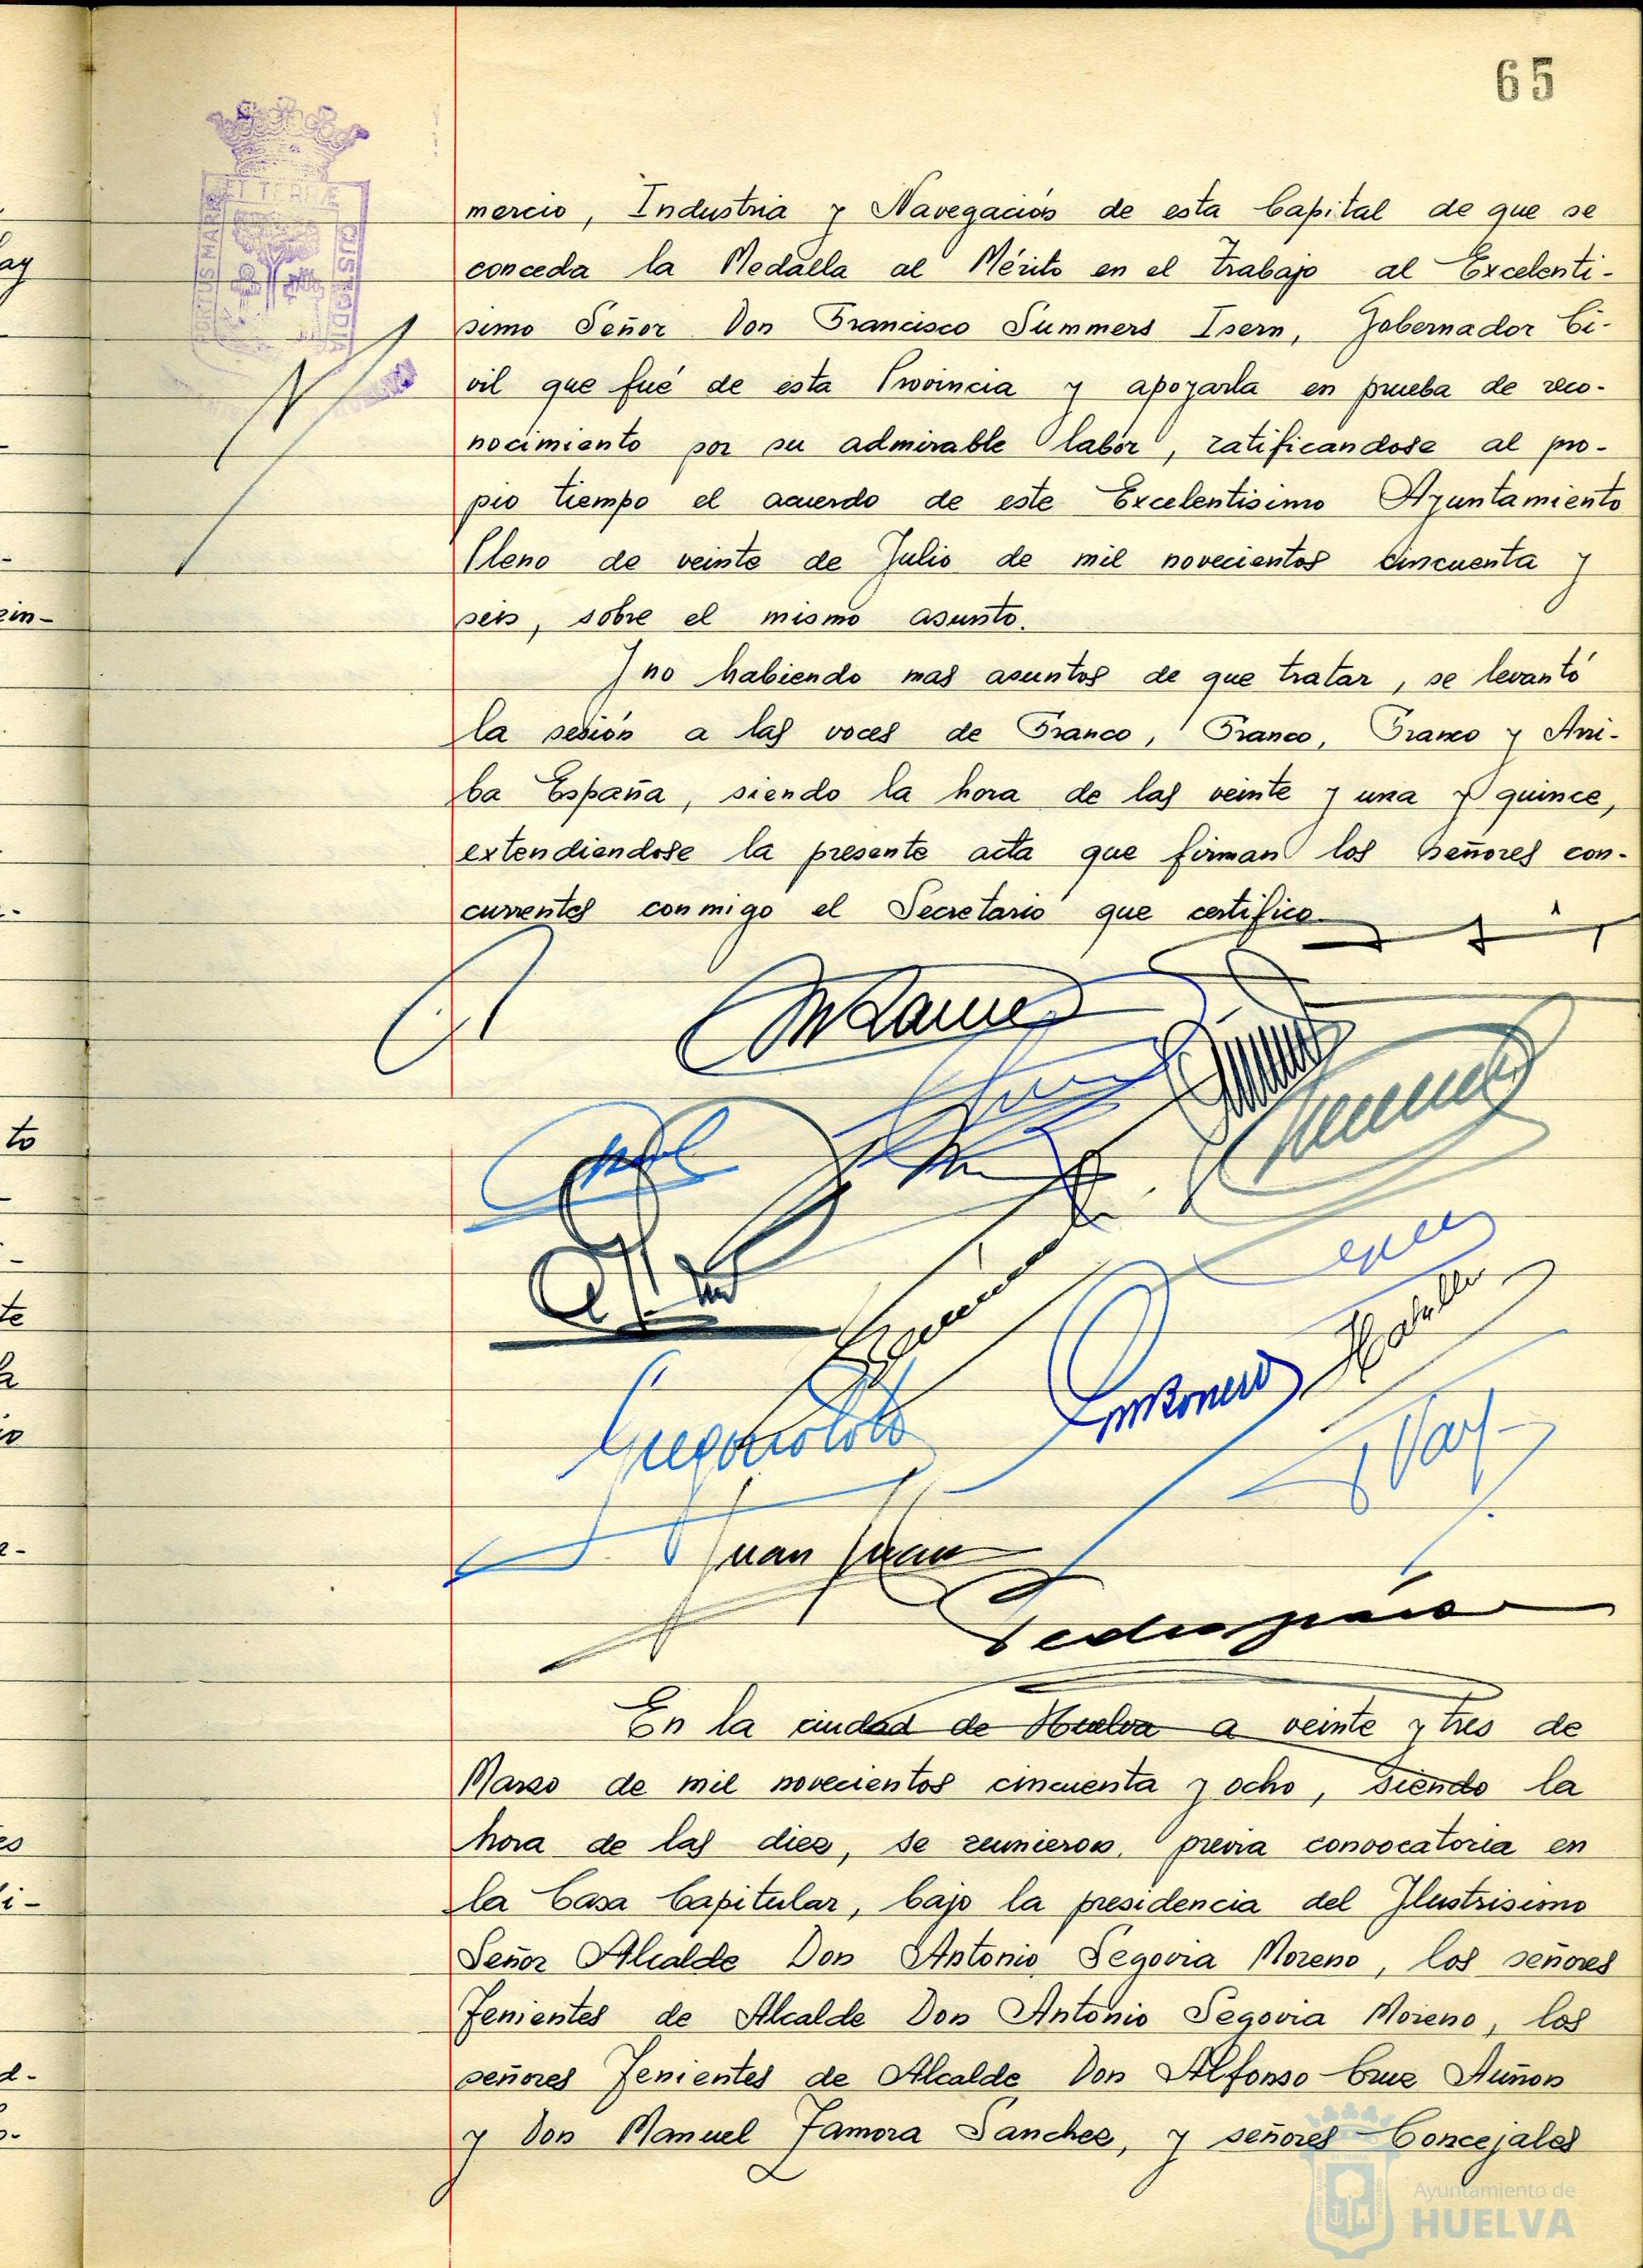 65
mercio, Industria y Navegación de esta Capital de que se
conceda la Medalla al Mérito en el trabajo al Excelenti-
simo Señor Don Francisco Summers Isern, Gobernador Ci-
vil que fué de esta Provincia y apoyarla en prueba de reco-
nocimiento por su admirable labor, ratificandose al pro-
pio tiempo el acuerdo de este Excelentisimo Ayuntamiento
Pleno de veinte de Julio de mil novecientos cincuenta y
seis, sobre el mismo asunto.
Y no habiendo mas asuntos de que tratar, se levantó
la sesión a las voces de Franco, Franco, Franco y Arri-
ba España, siendo la hora de las veinte y una y quince,
extendiendose la presente acta que firman los señores con-
currentes conmigo el Secretario que certifico.
Juan
En la ciudad de Huelva a veinte y tres de
Marzo de mil novecientos cincuenta y ocho, siendo la
hora de las diez, se reunieron, previa convocatoria en
la Casa Capitular, bajo la presidencia del Ilustrisimo
Señor Alcalde Don Antonio Segovia Moreno, los señores
Tenientes de Alcalde Don Antonio Segovia Moreno, los
señores Tenientes de Alcalde Don Alfonso Cruz Auñon
y Don Manuel Zamora Sanchez, y señores Concejales
PORTUS MARIS
ET TERRÆ
CUSTODIA
Ayuntamiento de
HUELVA